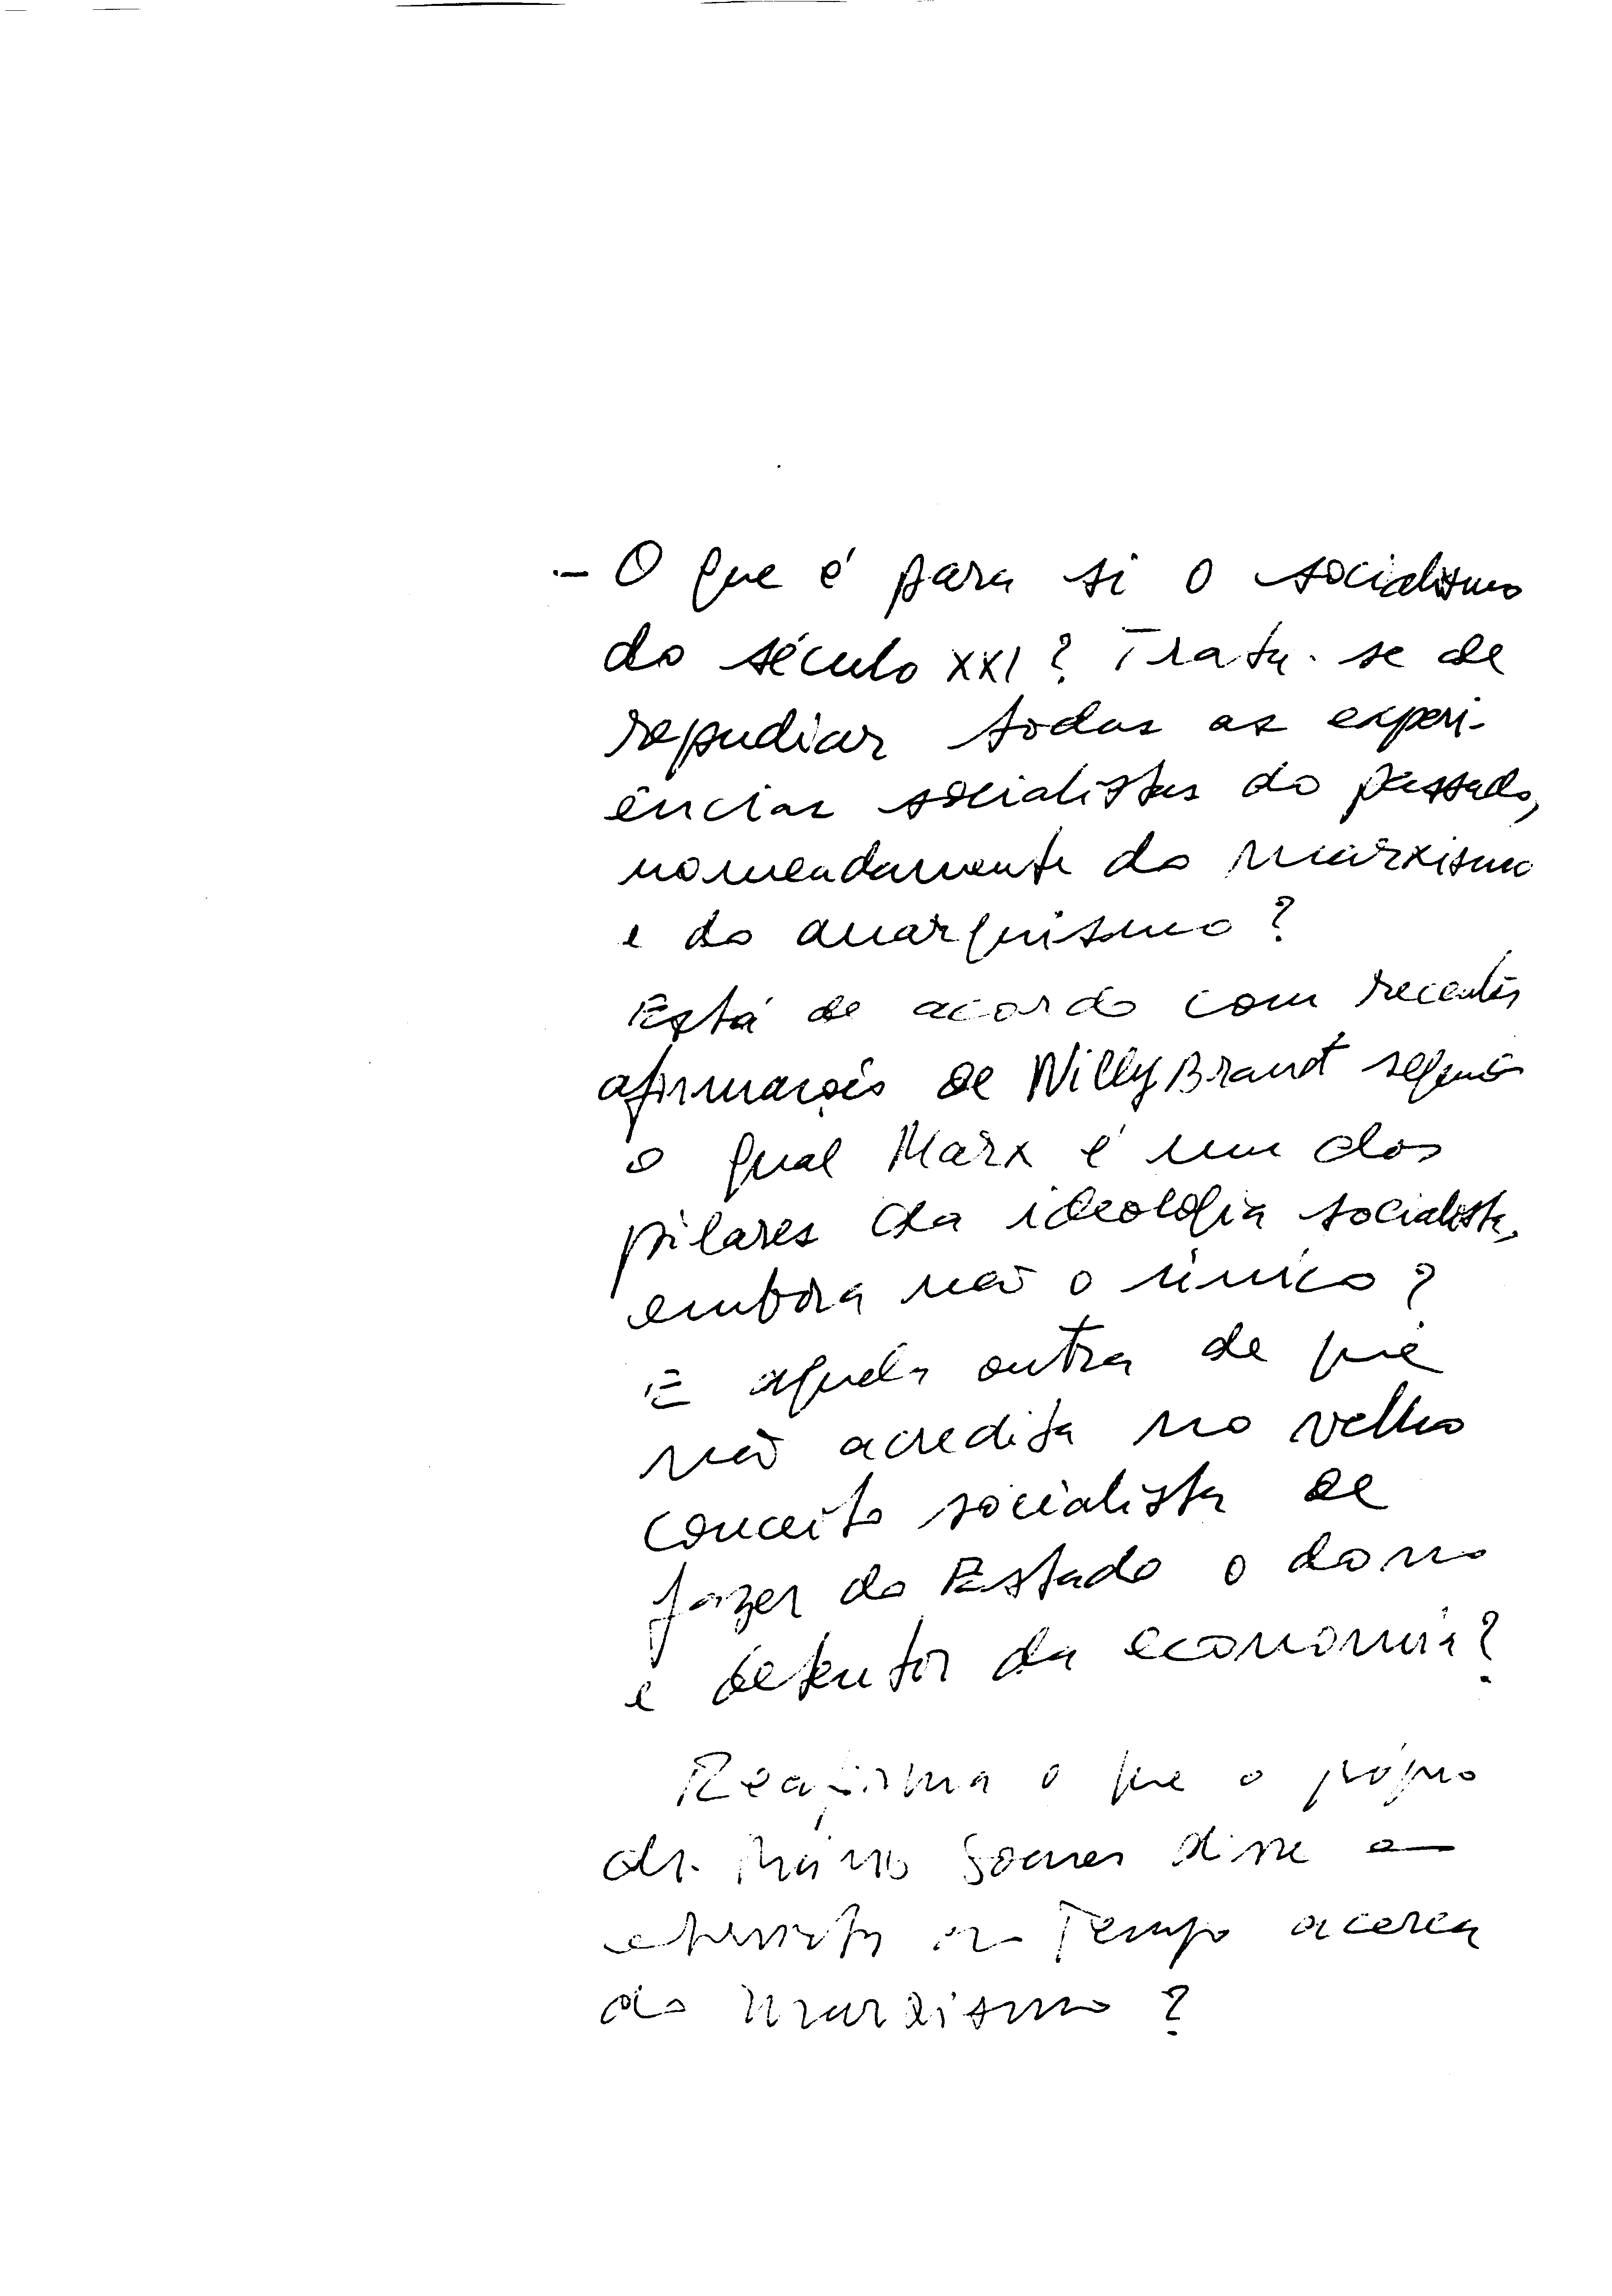 - O que é para si o socialismo
do século XXI? Trata-se de
repudiar todas as experi-
ências socialistas do passado,
nomeadamente do marxismo
e do anarquismo?
Está de acordo com recentes
afirmações de Willy Brandt segundo
o qual Marx é um dos
pilares da ideologia socialista,
embora não o único?
E aquela outra de que
não acredita no velho
conceito socialista de
fazer do Estado o dono
e detentor da economia?
Reafirma o que o próprio
dr. Mário Soares disse em
entrevista ao Tempo acerca
do marxismo?